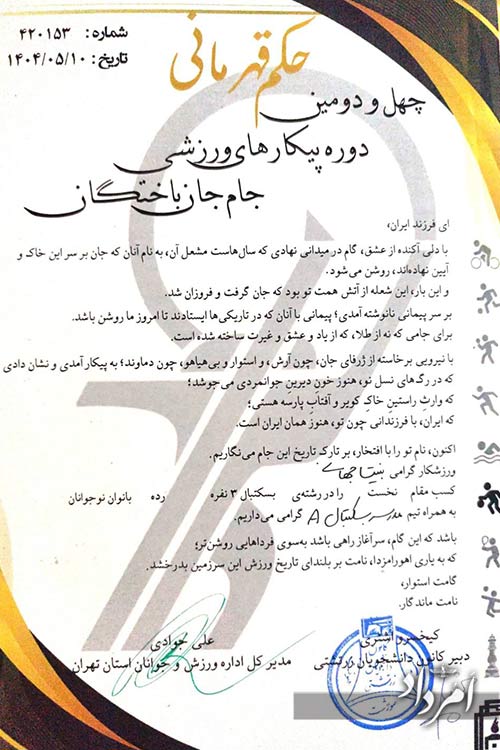 شماره: ۴۲۰۱۵۳
تاریخ: ۱۴۰۴/۰۵/۱۰
حکم قهرمانی
چهل و دومین
دوره پیکارهای ورزشی
جام جان باختگان
ای فرزند ایران،
با دلی آکنده از عشق، گام در میدانی نهادی که سال‌هاست مشعل آن، به نام آنان که جان بر سر این خاک و
آیین نهاده‌اند، روشن می‌شود.
و این بار، این شعله از آتش همت تو بود که جان گرفت و فروزان شد.
بر سر پیمانی نانوشته آمدی؛ پیمانی با آنان که در تاریکی‌ها ایستادند تا امروز ما روشن باشد.
برای جامی که نه از طلا، که از یاد و عشق و غیرت ساخته شده است.
با نیرویی برخاسته از ژرفای جان، چون آرش، و استوار و بی‌هیاهو، چون دماوند؛ به پیکار آمدی و نشان دادی
که در رگ‌های نسل تو، هنوز خون دیرینِ جوانمردی می‌جوشد؛
که وارثِ راستینِ خاکِ کویر و آفتابِ پارسه هستی؛
که ایران، با فرزندانی چون تو، هنوز همان ایران است.
اکنون، نام تو را با افتخار، بر تارک تاریخ این جام می‌نگاریم.
ورزشکار گرامی
کسب مقام نخست را در رشته‌ی بسکتبال ۳ نفره رده بانوان نوجوانان
به همراه تیم مدرسه بسکتبال A گرامی می‌داریم.
باشد که این گام، سرآغاز راهی باشد به‌سوی فرداهایی روشن‌تر؛
که به یاری اهورامزدا، نامت بر بلندای تاریخ ورزش این سرزمین بدرخشد.
گامت استوار،
نامت ماندگار.
کیخسرو اشتری
دبیر کانون دانشجویان زرتشتی
علی جوادی
مدیر کل اداره ورزش و جوانان استان تهران
امرداد